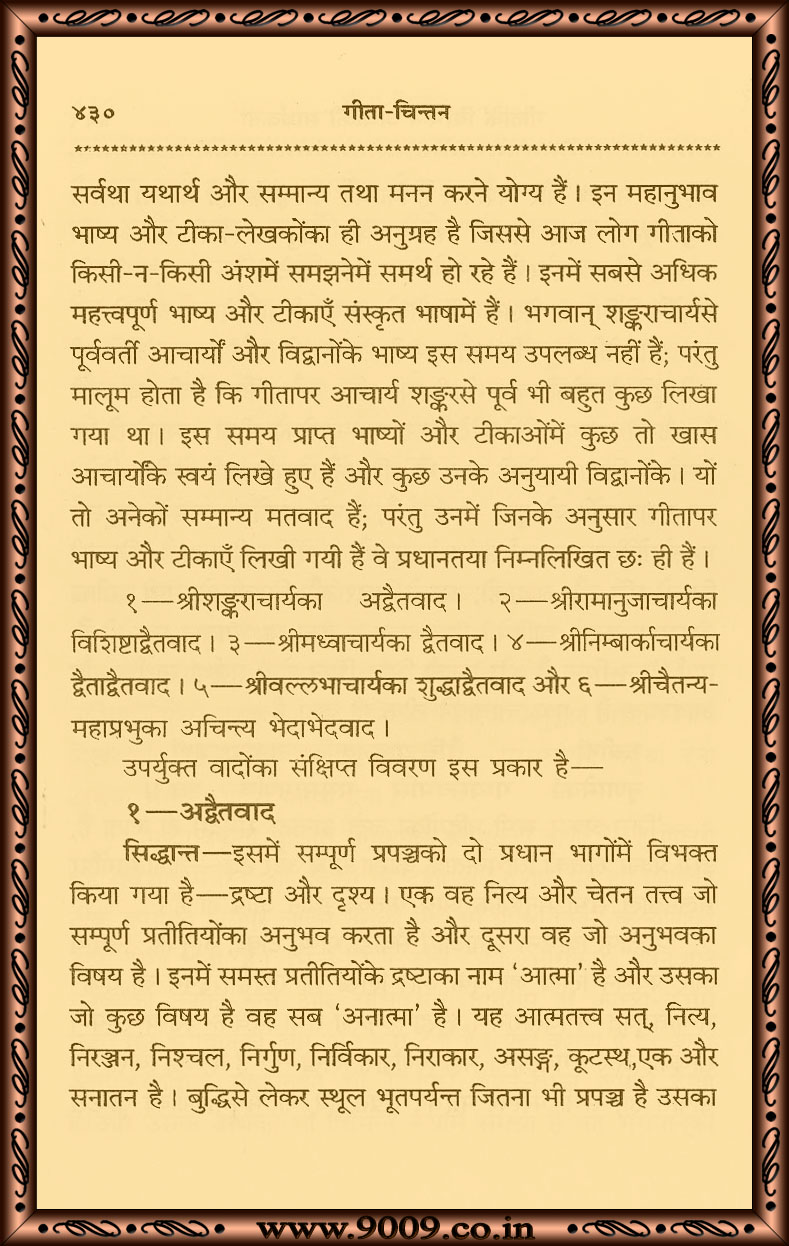 ४३० गीता-चिन्तन
सर्वथा यथार्थ और सम्मान्य तथा मनन करने योग्य हैं। इन महानुभाव
भाष्य और टीका-लेखकोंका ही अनुग्रह है जिससे आज लोग गीताको
किसी-न-किसी अंशमें समझनेमें समर्थ हो रहे हैं। इनमें सबसे अधिक
महत्त्वपूर्ण भाष्य और टीकाएँ संस्कृत भाषामें हैं। भगवान् शङ्कराचार्यसे
पूर्ववर्ती आचार्यों और विद्वानोंके भाष्य इस समय उपलब्ध नहीं हैं; परंतु
मालूम होता है कि गीतापर आचार्य शङ्करसे पूर्व भी बहुत कुछ लिखा
गया था। इस समय प्राप्त भाष्यों और टीकाओंमें कुछ तो खास
आचार्योंके स्वयं लिखे हुए हैं और कुछ उनके अनुयायी विद्वानोंके। यों
तो अनेकों सम्मान्य मतवाद हैं; परंतु उनमें जिनके अनुसार गीतापर
भाष्य और टीकाएँ लिखी गयी हैं वे प्रधानतया निम्नलिखित छः ही हैं।
१—श्रीशङ्कराचार्यका अद्वैतवाद। २—श्रीरामानुजाचार्यका
विशिष्टाद्वैतवाद। ३—श्रीमध्वाचार्यका द्वैतवाद। ४—श्रीनिम्बार्काचार्यका
द्वैताद्वैतवाद। ५—श्रीवल्लभाचार्यका शुद्धाद्वैतवाद और ६—श्रीचैतन्य-
महाप्रभुका अचिन्त्य भेदाभेदवाद।
उपर्युक्त वादोंका संक्षिप्त विवरण इस प्रकार है—
१—अद्वैतवाद
सिद्धान्त—इसमें सम्पूर्ण प्रपञ्चको दो प्रधान भागोंमें विभक्त
किया गया है—द्रष्टा और दृश्य। एक वह नित्य और चेतन तत्त्व जो
सम्पूर्ण प्रतीतियोंका अनुभव करता है और दूसरा वह जो अनुभवका
विषय है। इनमें समस्त प्रतीतियोंके द्रष्टाका नाम ‘आत्मा’ है और उसका
जो कुछ विषय है वह सब ‘अनात्मा’ है। यह आत्मतत्त्व सत्, नित्य,
निरञ्जन, निश्चल, निर्गुण, निर्विकार, निराकार, असङ्ग, कूटस्थ,एक और
सनातन है। बुद्धिसे लेकर स्थूल भूतपर्यन्त जितना भी प्रपञ्च है उसका
www.9009.co.in